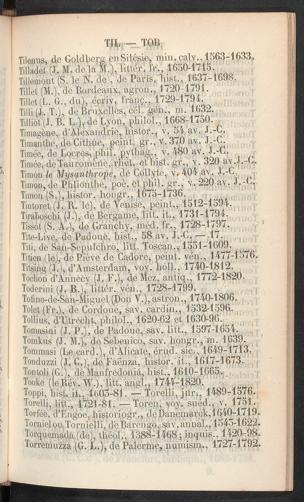 TIL — TOR
Tilenus, de Goldberg en Silésie, min. calv., 1563-1633.
Tilladet (J. M. de la M.), littér. fr., 1650-1715.
Tillemont (S. le N. de), de Paris, hist., 1637-1698.
Tillet (M.), de Bordeaux, agron., 1720-1791.
Tillet (L. G., du), écriv. franç., 1729-1794.
Tilli (J. T.), de Bruxelles, cél. gén., m. 1632.
Tilliot (J. B. L.), de Lyon, philol., 1668-1750.
Timagène, d'Alexandrie, histor., v. 54 av. J.-C.
Timanthe, de Cithue, peint. gr., v. 370 av. J.-C.
Timée, de Locres, phil. pythag., v. 480 av. J.-C.
Timée, de Tauromène, rhét. et hist. gr., v. 320 av. J.-C.
Timon le Mysanthrope, de Collyte, v. 404 av. J.-C.
Timon, de Phlionthe, poë. et phil. gr., v. 220 av. J.-C.
Timon (S.), histor. hongr., 1675-1736.
Tintoret (J. R. le), de Venise, peint., 1512-1594.
Tiraboschi (J.), de Bergame, litt. it., 1731-1794.
Tissot (S. A.), de Grancy, méd. fr., 1728-1797.
Tite-Live, de Padoue, hist., 58 av. J.-C. — 17.
Titi, de San-Sepulchro, litt. Toscan, 1551-1609.
Titien (le), de Piève de Cadore, peint. vén., 1477-1576.
Titsing (J.), d'Amsterdam, voy. holl., 1740-1812.
Tochon d'Annecy (J. F.), de Mez, antiq., 1772-1820.
Toderini (J. B.), littér. vén., 1728-1799.
Tofino-de-San-Miguel (Don V.), astron., 1740-1806.
Tolet (Fr.), de Cordoue, sav. cardin., 1532-1596.
Tollius, d'Utrecht, philol., 1620-62 et 1630-96.
Tomasini (J. P.), de Padoue, sav. litt., 1597-1654.
Tomkus (J. M.), de Sebenico, sav. hongr., m. 1639.
Tommasi (le card.), d'Alicate, érud. sic., 1649-1713.
Tonduzzi (J. C.), de Faënza, histor. it., 1617-1673.
Tontoli (G.), de Manfredonia, hist., 1610-1665.
Tooke (le Rév. W.), litt. angl., 1744-1820.
Toppi, hist. it., 1605-81. — Torelli, jur., 1489-1576.
Torelli, litt., 1721-81. — Toren, voy. suéd., v. 1751.
Torfée, d'Engoe, historiogr., de Danemarck, 1640-1719.
Torniel ou Tornielli, de Barengo, sav. annal., 1543-1622.
Torquemada (de), théol., 1388-1468; inquis., 1420-98.
Torremuzza (G. L.), de Palerme, numism., 1727-1792.